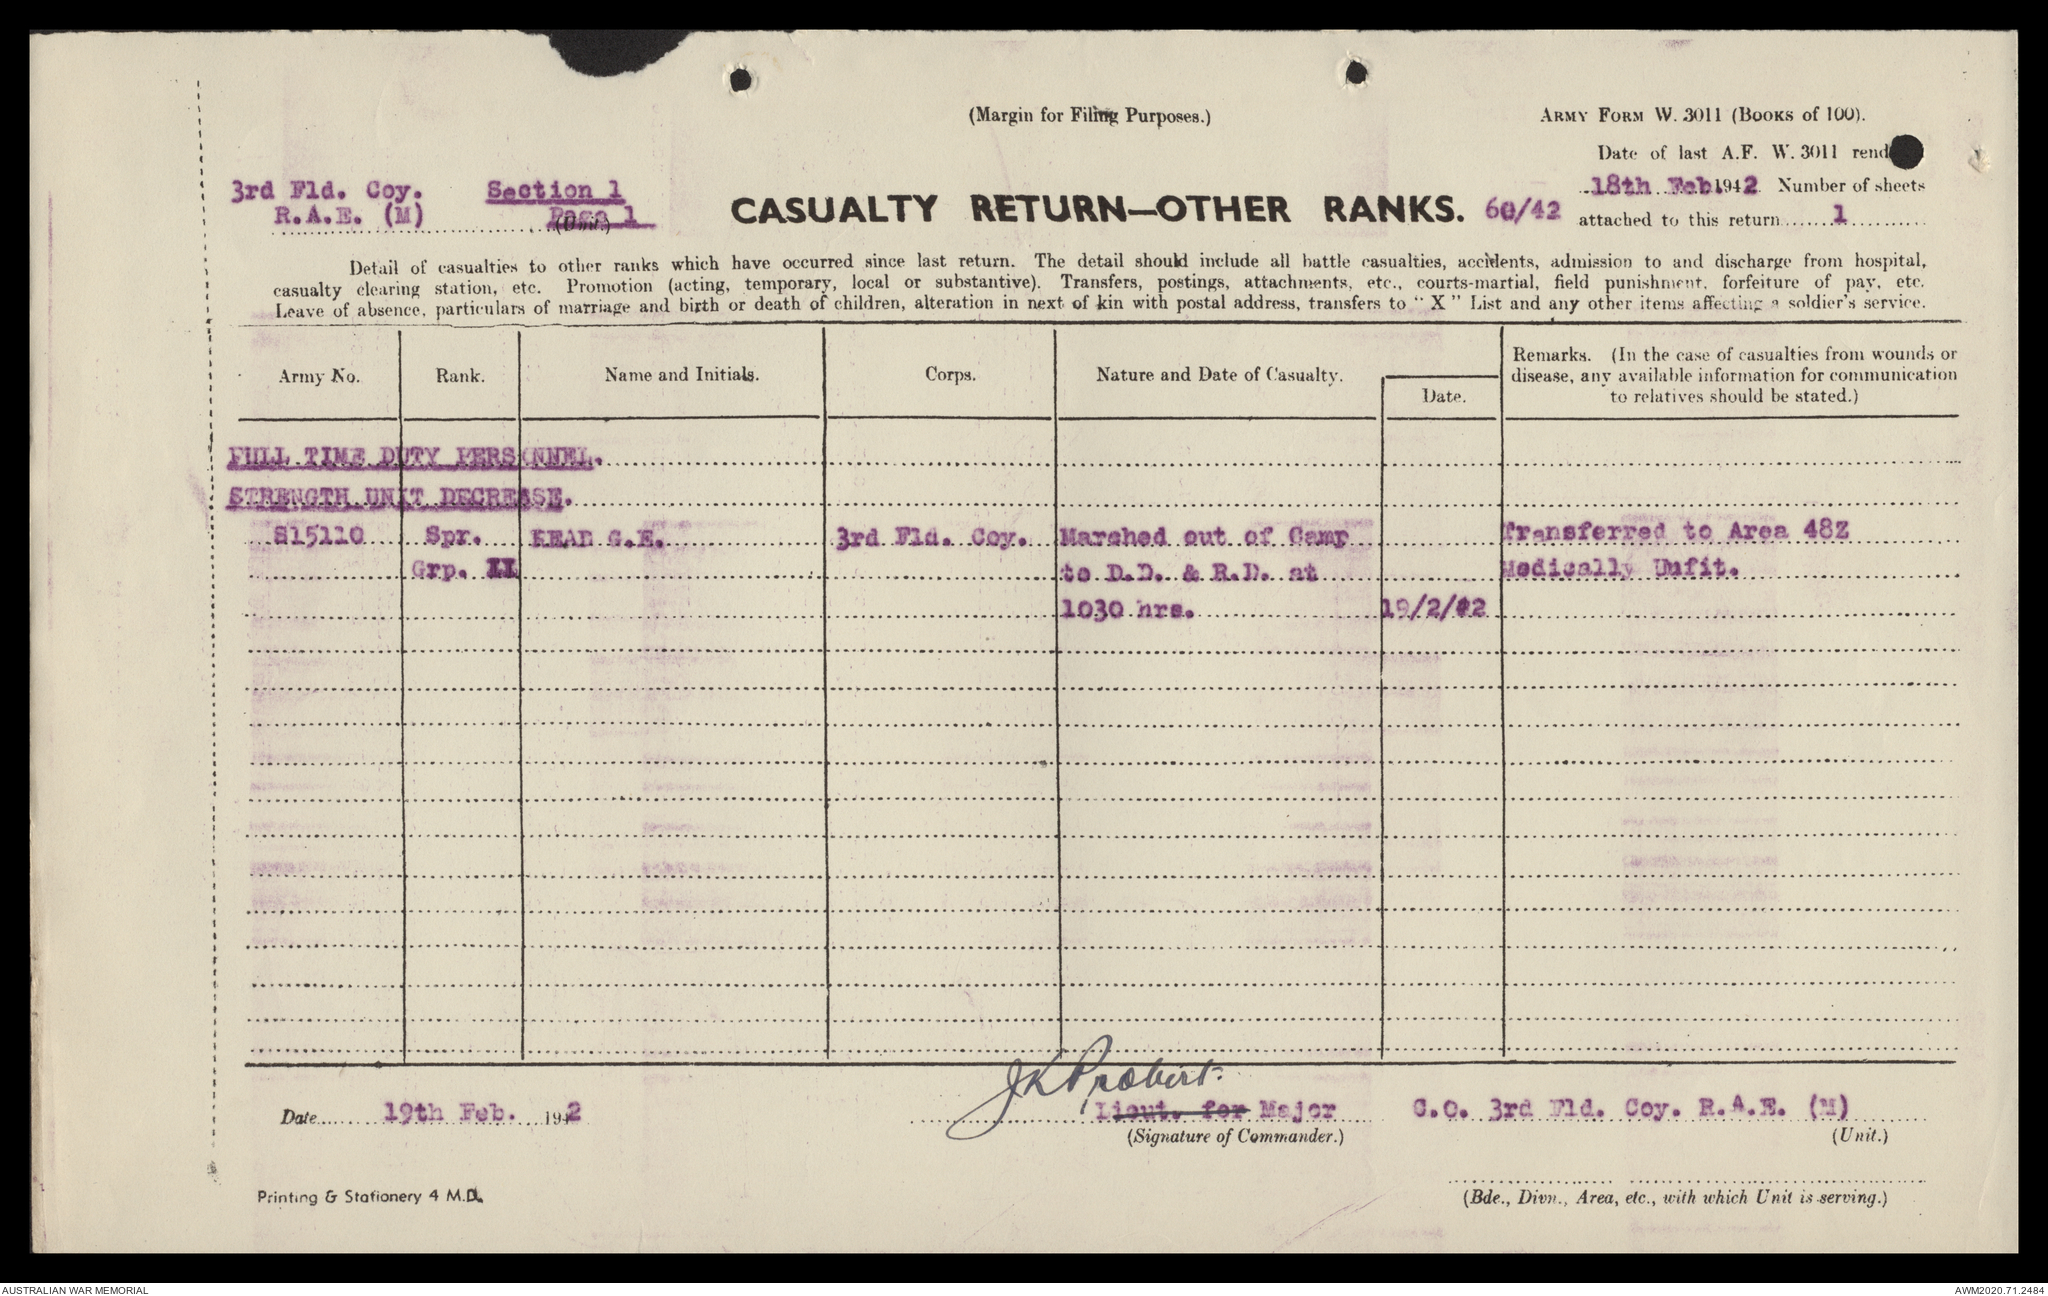 (Margin for Filing Purposes.)
ARMY FORM W. 3011 (BOOKS of 100).
Date of last A.F. W. 3011 rend
18th Feb. 1942 Number of sheets
attached to this return 1
3rd Fld. Coy. Section 1
R.A.E. (M) Page 1
(Unit.)
CASUALTY RETURN—OTHER RANKS. 60/42
Detail of casualties to other ranks which have occurred since last return. The detail should include all battle casualties, accidents, admission to and discharge from hospital,
casualty clearing station, etc. Promotion (acting, temporary, local or substantive). Transfers, postings, attachments, etc., courts-martial, field punishment, forfeiture of pay, etc.
Leave of absence, particulars of marriage and birth or death of children, alteration in next of kin with postal address, transfers to " X " List and any other items affecting a soldier's service.
Army No. Rank. Name and Initials. Corps. Nature and Date of Casualty. Date.
Remarks. (In the case of casualties from wounds or
disease, any available information for communication
to relatives should be stated.)
FULL TIME DUTY PERSONNEL.
STRENGTH UNIT DECREASE.
S15110 Spr. G.E. 3rd Fld. Coy. Marched out of Camp Transferred to Area 48Z
Grp. II to D.D. & R.D. at Medically Unfit.
1030 hrs. 19/2/42
J K Probert.
Date 19th Feb. 1942 Lieut. for Major C.O. 3rd Fld. Coy. R.A.E. (M)
(Signature of Commander.) (Unit.)
Printing & Stationery 4 M.D.
(Bde., Divn., Area, etc., with which Unit is serving.)
AUSTRALIAN WAR MEMORIAL AWM2020.71.2484